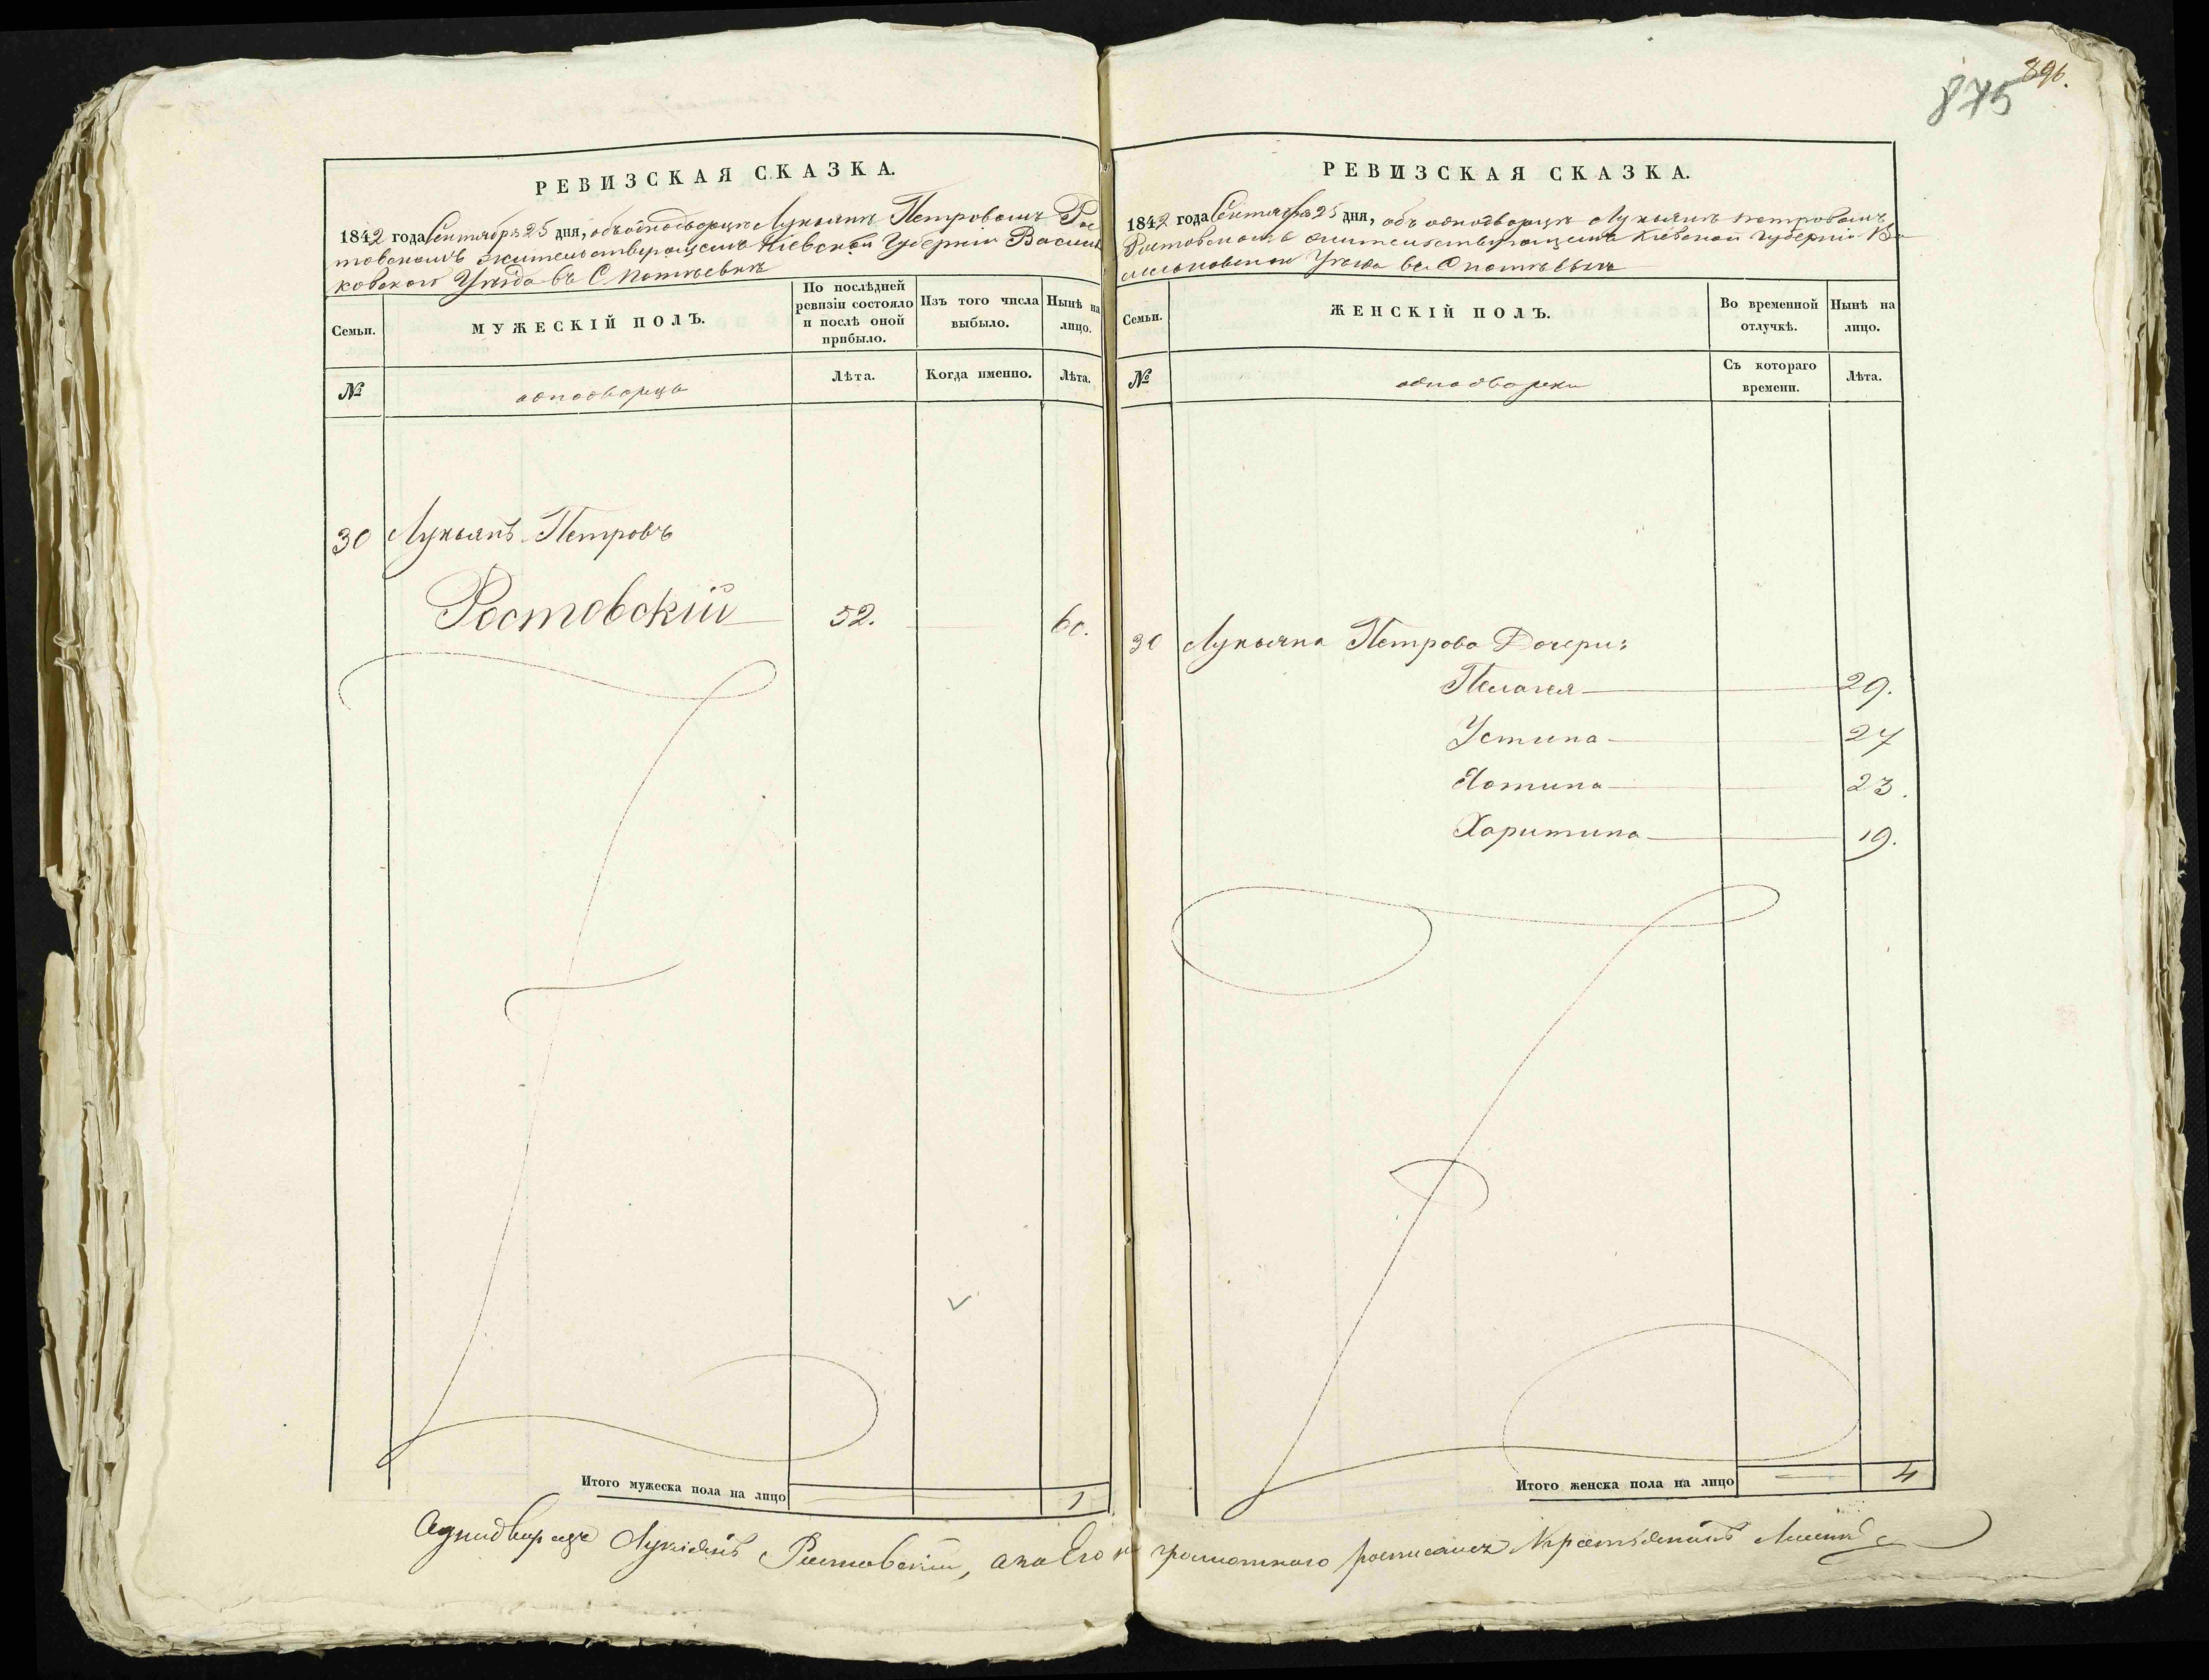 896.
875
РЕВИЗСКАЯ СКАЗКА.
1842 года Сентября 25 дня, объ однодворце Лукьяне Петровомъ Рос
товскомъ жительствующемъ Кіевской Губерніи Василь
ковскаго Уезда въ С
Семьи.
МУЖЕСКІЙ ПОЛЪ.
По послѣдней ревизіи состояло и послѣ оной прибыло.
Изъ того числа выбыло.
Нынѣ на лицо.
№
однодворцы
Лѣта.
Когда именно.
Лѣта.
30 Лукьянъ Петровъ
Ростовскій 52. 60.
Итого мужеска пола на лицо 1
РЕВИЗСКАЯ СКАЗКА.
1842 года Сентября 25 дня, объ однодворце Лукьяне Петровомъ
Ростовскомъ жительствующемъ Кіевской Губерніи Ва
сильковскаго Уезда въ С
Семьи.
ЖЕНСКІЙ ПОЛЪ.
Во временной отлучкѣ.
Нынѣ на лицо.
№
однодворки
Съ котораго времени.
Лѣта.
30 Лукьяна Петрова Дочери:
Пелагея 29.
Устина 27
Хотина 23.
Харитина 19.
Итого женска пола на лицо 4
Лукіянъ Ростовскій, а на Его не грамотного росписался